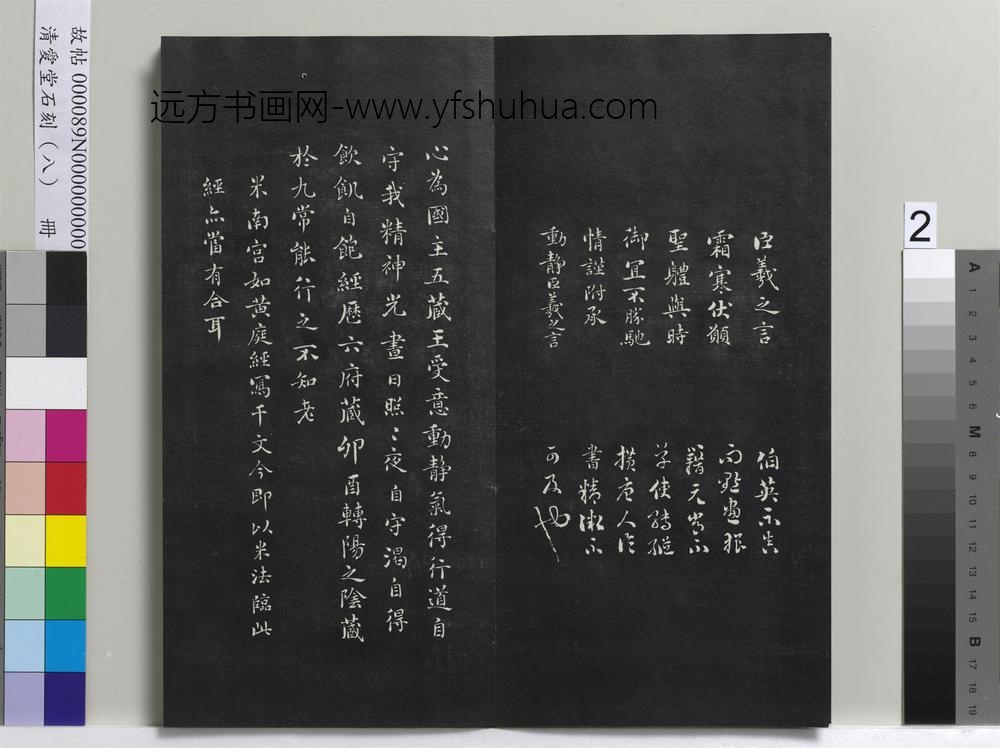 远方书画网-www.yfshuhua.com
故帖 000089N000000000
清愛堂石刻（八） 冊
2
臣羲之言
霜寒伏願
聖體與時
御宜不勝馳
情謹附承
動靜臣羲之言
伯英不真
而點畫狼
籍元常不
草使轉縱
橫唐人作
書精微不
可及也
心為國主五藏王受意動靜氣得行道自
守我精神光晝日照〻夜自守渴自得
飲飢自飽經歷六府藏卯酉轉陽之陰藏
於九常能行之不知老
米南宮如黃庭經寫千文今即以米法臨此
經亦當有合耳
A 1 2 3 4 5 6 M 8 9 10 11 12 13 14 15 B 17 18 19